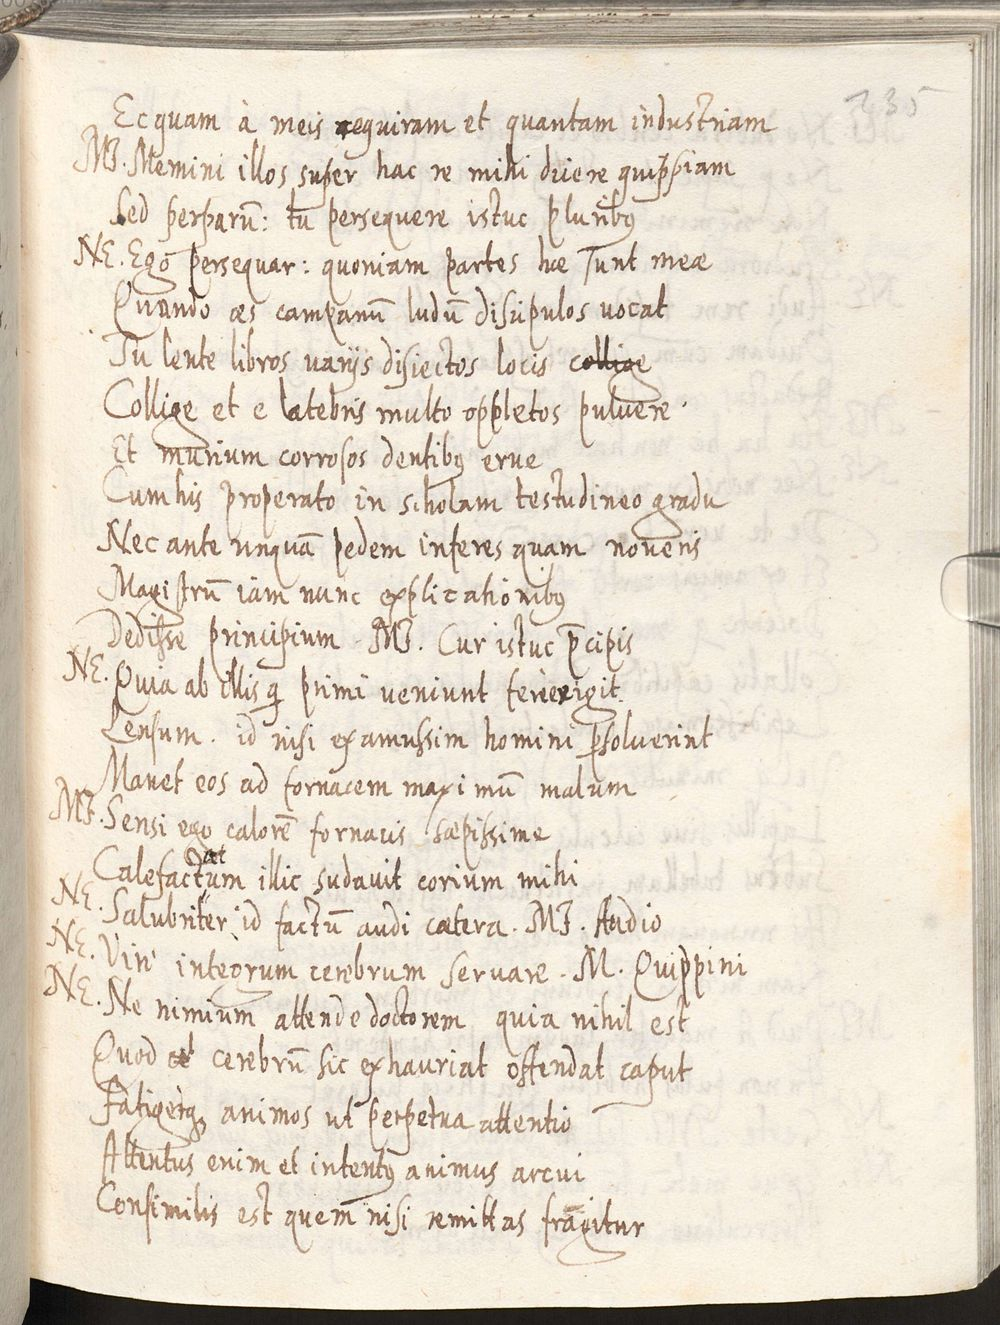 235
Ecquam à meis requiram et quantam industriam
MI. Memini illos super hac re mihi dicere quippiam
Sed perparū: tu persequere istuc pluribꝰ
NE. Ego persequar: quoniam partes hæ sunt meæ
Quando æs campanū ludū discipulos vocat
Tu lente libros varijs disiectos locis collige
Collige et e latebris multo oppletos pulvere.
Et murium corrosos dentibꝰ erue
Cum his properato in scholam testudineo gradu
Nec ante unquā pedem inferes quam noveris
Magistrū iam nunc explicationibꝰ
Dedisse principium. MI. Cur istuc p̄cipis
NE. Quia ab illis q̄ primi veniunt fere exigit
Censum. id nisi examussim homini ꝑsolverint
Manet eos ad fornacem maximū malum
MI. Sensi ego calorē fornacis sæpissime
Calefactat
um illic sudavit corium mihi
NE. Salubriter id factū audi cætera. MI. Audio
NE. Vin' integrum cerebrum servare. M. Quippini
NE. Ne nimium attende doctorem quia nihil est
Quod cerebrū sic exhauriat offendat caput
Fatigetqꝫ animos ut perpetua attentio
Attentus enim et intentꝰ animus arcui
Consimilis est quem nisi remittas frangitur